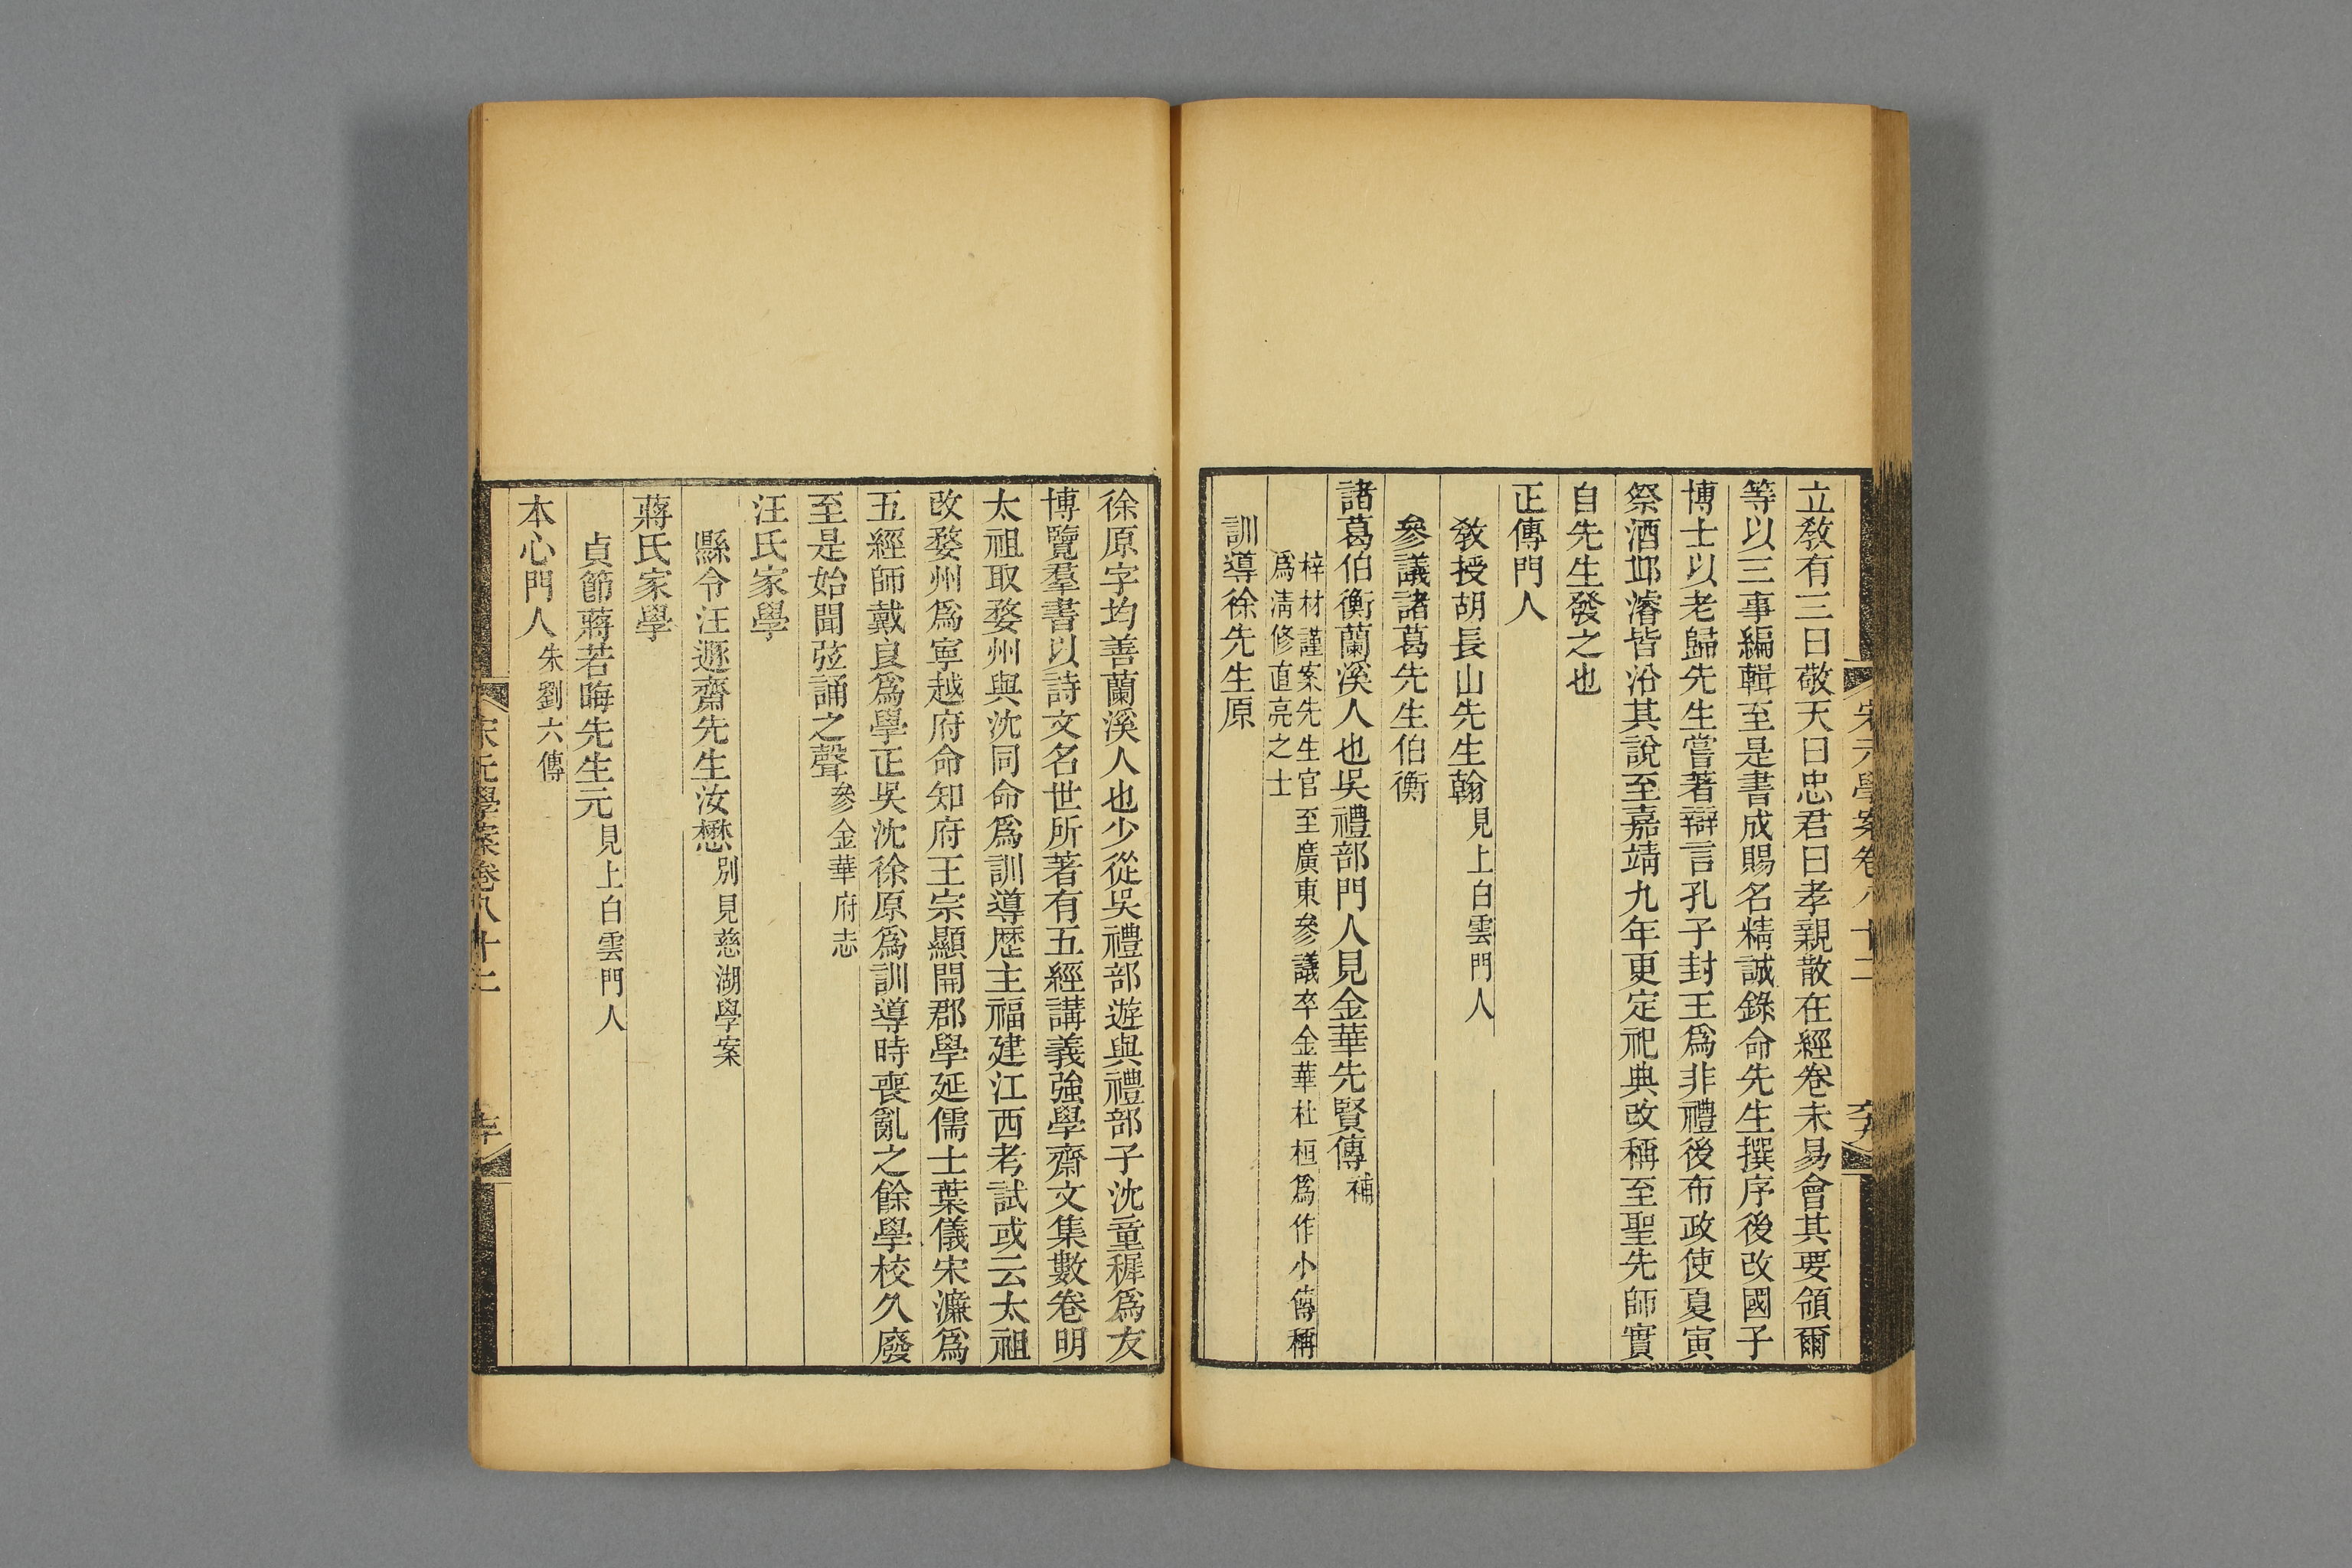 立敎有三曰敬天曰忠君曰孝親散在經卷未易會其要領爾
等以三事編輯至是書成賜名精誠錄命先生撰序後改國子
博士以老歸先生嘗著辯言孔子封王爲非禮後布政使夏寅
祭酒邱濬皆沿其說至嘉靖九年更定祀典改稱至聖先師實
自先生發之也
正傳門人
敎授胡長山先生翰見上白雲門人
參議諸葛先生伯衡
諸葛伯衡蘭溪人也吳禮部門人見金華先賢傳補
梓材謹案先生官至廣東參議卒金華杜桓爲作小傳稱
爲淸修直亮之士
訓導徐先生原
徐原字均善蘭溪人也少從吳禮部遊與禮部子沈童穉爲友
博覽羣書以詩文名世所著有五經講義強學齋文集數卷明
太祖取婺州與沈同命爲訓導歷主福建江西考試或云太祖
改婺州爲寧越府命知府王宗顯開郡學延儒士葉儀宋濂爲
五經師戴良爲學正吳沈徐原爲訓導時喪亂之餘學校久廢
至是始聞弦誦之聲參金華府志
汪氏家學
縣令汪遯齋先生汝懋別見慈湖學案
蔣氏家學
貞節蔣若晦先生元見上白雲門人
本心門人朱劉六傳
宋元學案卷八十二